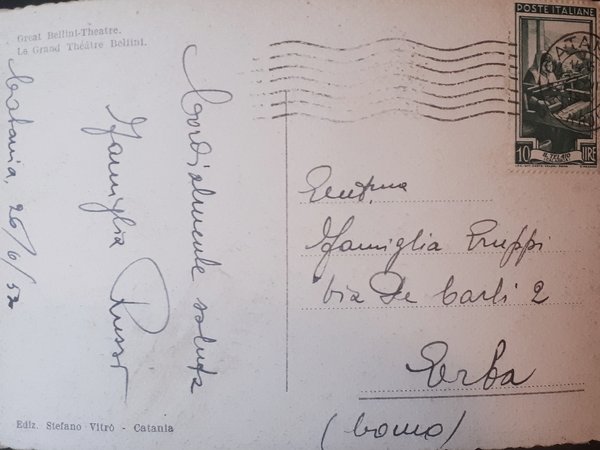 Great Bellini-Theatre.
Le Grand Théâtre Bellini.
Catania, 26/6/52
Cordialmente saluta
Famiglia Russo
Ediz. Stefano Vitrò - Catania
POSTE ITALIANE
CATAN
10 LIRE
IL TELAIO
Famiglia Pruppi
via De Carli 2
Erba
(Como)